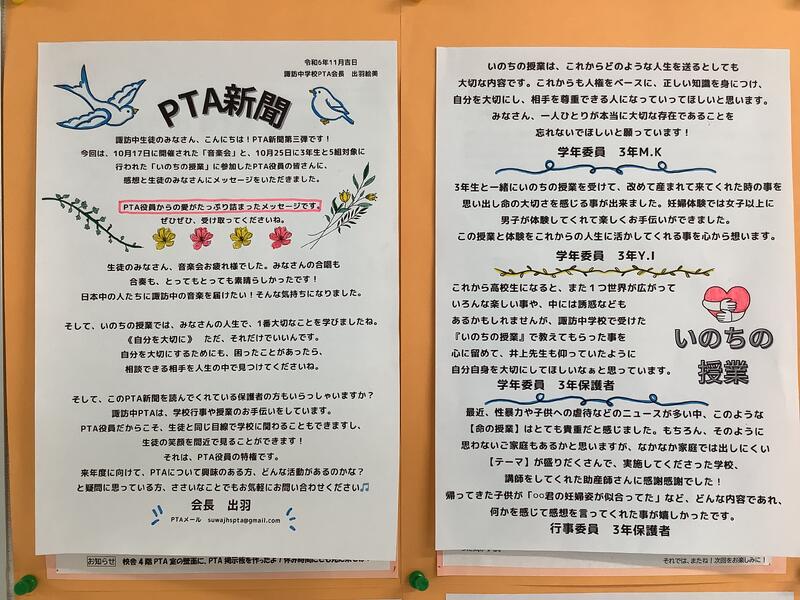 令和6年11月吉日
諏訪中学校PTA会長　出羽絵美
PTA新聞
諏訪中生徒のみなさん、こんにちは！PTA新聞第三弾です！
今回は、10月17日に開催された「音楽会」と、10月25日に3年生と5組対象に
行われた「いのちの授業」に参加したPTA役員の皆さんに、
感想と生徒のみなさんにメッセージをいただきました。
PTA役員からの愛がたっぷり詰まったメッセージです。
ぜひぜひ、受け取ってくださいね。
生徒のみなさん、音楽会お疲れ様でした。みなさんの合唱も
合奏も、とってもとっても素晴らしかったです！
日本中の人たちに諏訪中の音楽を届けたい！そんな気持ちになりました。
そして、いのちの授業では、みなさんの人生で、1番大切なことを学びましたね。
《自分を大切に》　ただ、それだけでいいんです。
自分を大切にするためにも、困ったことがあったら、
相談できる相手を人生の中で見つけてくださいね。
そして、このPTA新聞を読んでくれている保護者の方もいらっしゃいますか？
諏訪中PTAは、学校行事や授業のお手伝いをしています。
PTA役員だからこそ、生徒と同じ目線で学校に関わることもできますし、
生徒の笑顔を間近で見ることができます！
それは、PTA役員の特権です。
来年度に向けて、PTAについて興味のある方、どんな活動があるのかな？
と疑問に思っている方、ささいなことでもお気軽にお問い合わせください🎵
会長　出羽
PTAメール　suwajhspta@gmail.com
お知らせ　校舎4階PTA室の壁面に、PTA掲示板を作ったよ！
いのちの授業は、これからどのような人生を送るとしても
大切な内容です。これからも人権をベースに、正しい知識を身につけ、
自分を大切にし、相手を尊重できる人になっていってほしいと思います。
みなさん、一人ひとりが本当に大切な存在であることを
忘れないでほしいと願っています！
学年委員　3年M.K
3年生と一緒にいのちの授業を受けて、改めて産まれて来てくれた時の事を
思い出し命の大切さを感じる事が出来ました。妊婦体験では女子以上に
男子が体験してくれて楽しくお手伝いができました。
この授業と体験をこれからの人生に活かしてくれる事を心から想います。
学年委員　3年Y.I
これから高校生になると、また1つ世界が広がって
いろんな楽しい事や、中には誘惑なども
あるかもしれませんが、諏訪中学校で受けた
『いのちの授業』で教えてもらった事を
心に留めて、井上先生も仰っていたように
自分自身を大切にしてほしいなぁと思っています。
学年委員　3年保護者
いのちの
授業
最近、性暴力や子供への虐待などのニュースが多い中、このような
【命の授業】はとても貴重だと感じました。もちろん、そのように
思わないご家庭もあるかと思いますが、なかなか家庭では出しにくい
【テーマ】が盛りだくさんで、実施してくださった学校、
講師をしてくれた助産師さんに感謝感謝でした！
帰ってきた子供が「○○君の妊婦姿が似合ってた」など、どんな内容であれ、
何かを感じて感想を言ってくれた事が嬉しかったです。
行事委員　3年保護者
それでは、またね！次回をお楽しみに！